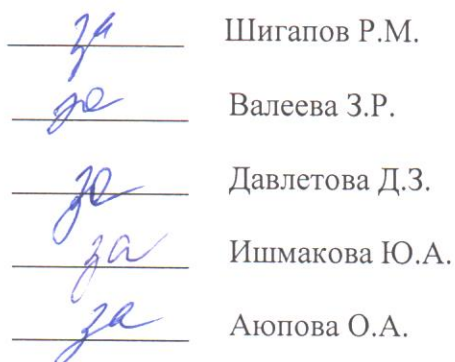 за Шигапов Р.М.
за Валеева З.Р.
за Давлетова Д.З.
за Ишмакова Ю.А.
за Аюпова О.А.